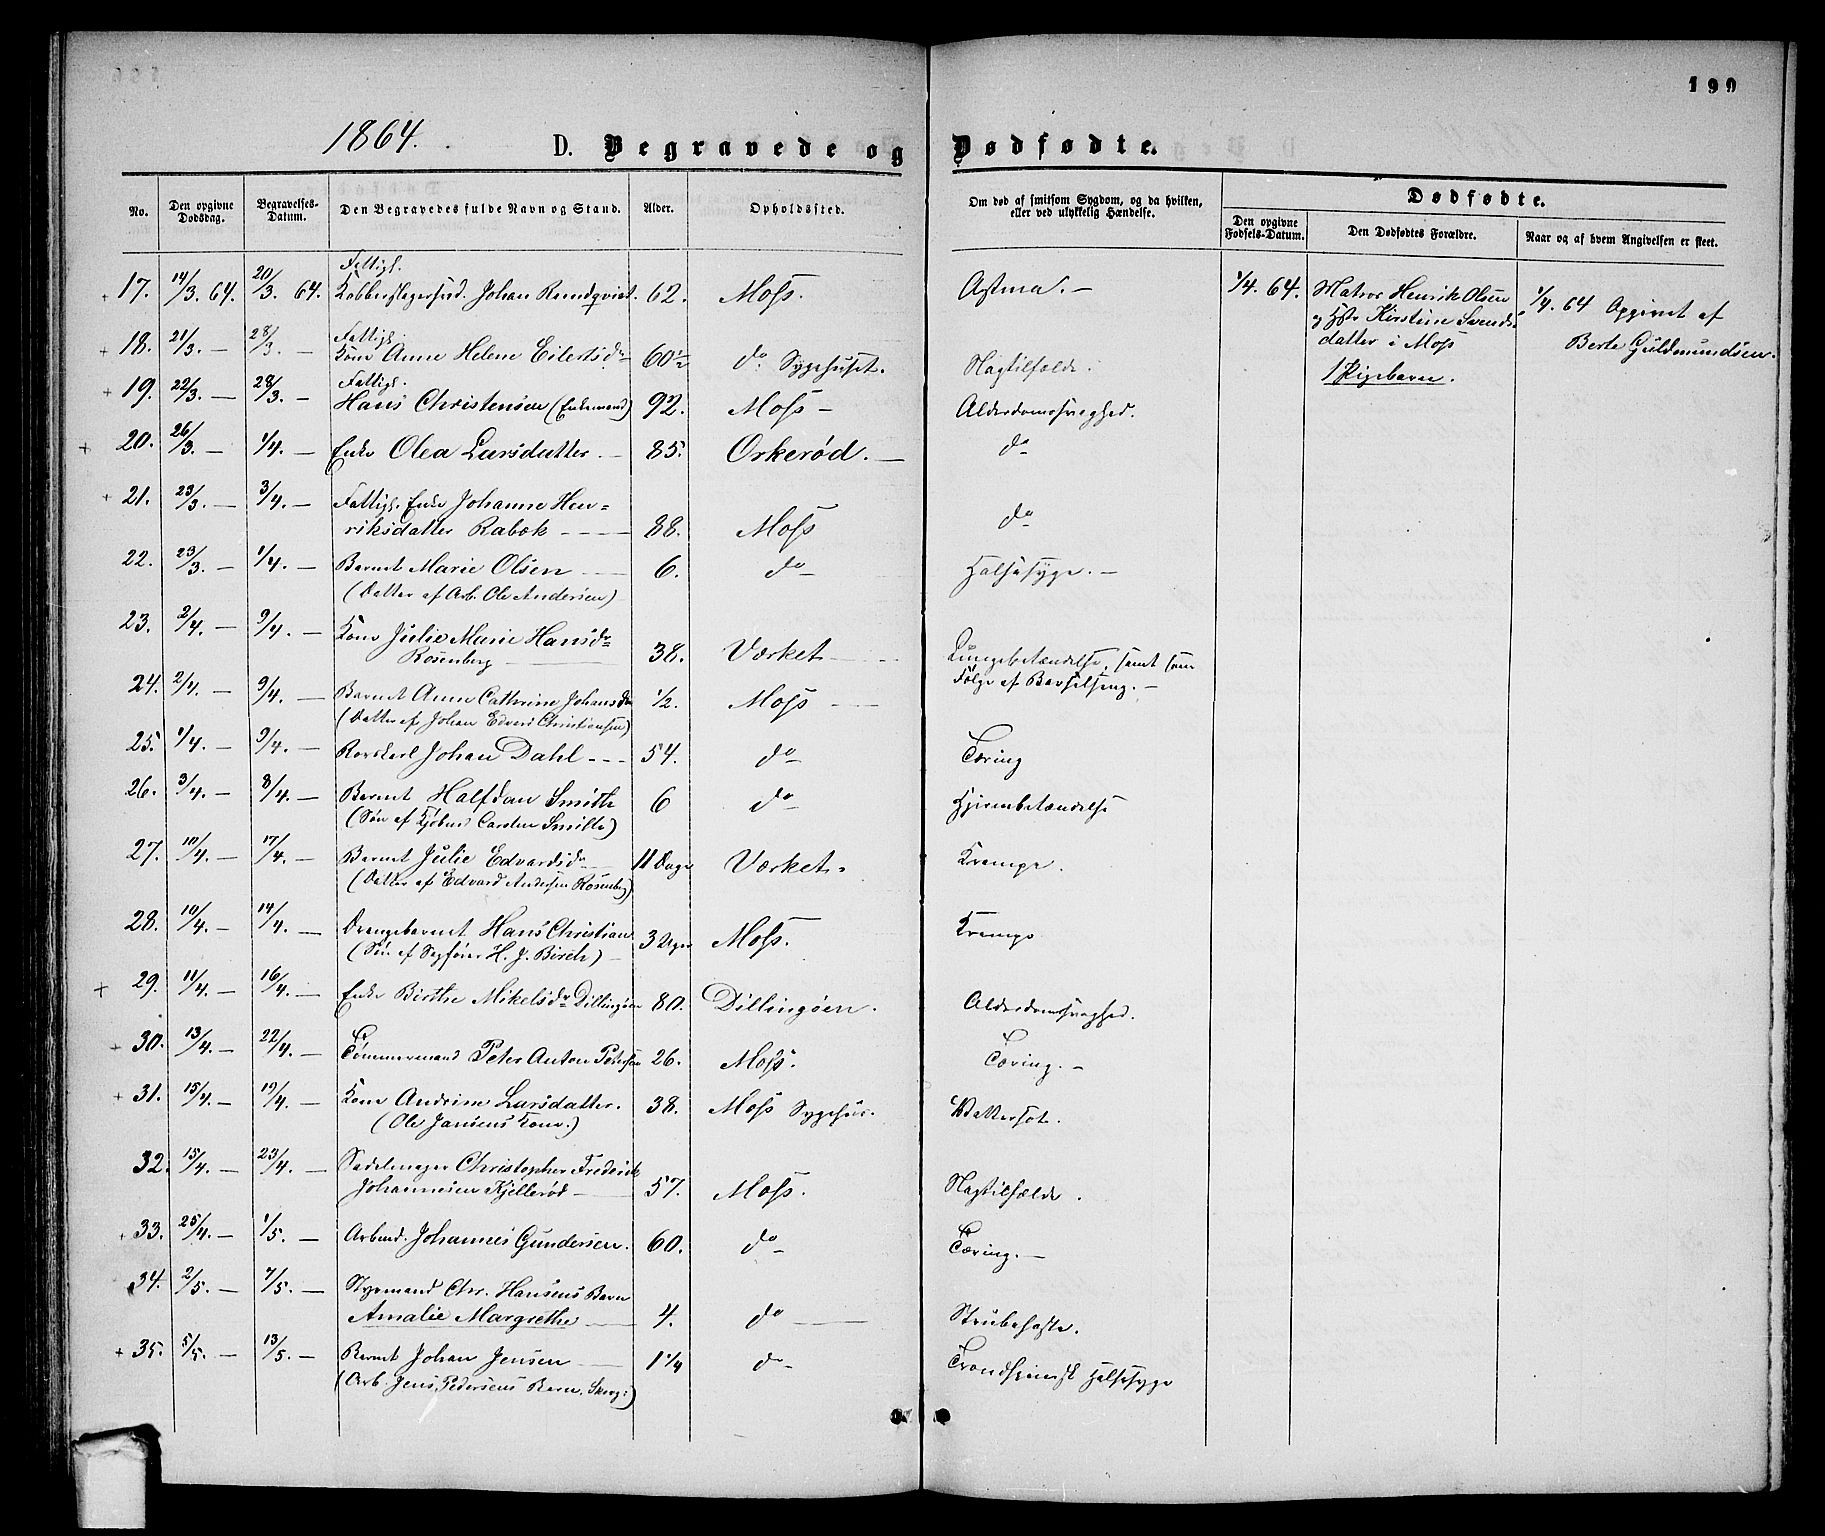 199
1864.
D. Begravede og Dødfødte.
No.
Den opgivne Dødsdag.
Begravelses-Datum.
Den Begravedes fulde Navn og Stand.
Alder.
Opholdssted.
Om død af smitsom Sygdom, og da hvilken, eller ved ulykkelig Hændelse.
Dødfødte.
Den opgivne Fødsels-Datum.
Den Dødfødtes Forældre.
Naar og af hvem Angivelsen er skeet.
Fattigl.
17. 14/3. 64. 20/3. 64. Kobberslagersvd. Johan Rundqvist. 62. Moss. Astma. — 1/4. 64. Matros Henrik Olsen 1/4. 64 Opgivet af
og Hstr Kirstine Svends-
datter i Moss Berte Guldmundsen.
1 Pigebarn.
Fattigl.
18. 21/3. — 28/3. — Kone Anne Helene Eilertsdr 60 1/2 do Sygehuset. Slagtilfælde.
Fattigl.
19. 22/3. — 28/3. — Hans Christensen (Enkemand) 92. Moss — Alderdomssvaghed.
20. 26/3. — 1/4. — Enke Olea Larsdatter. — 85. Orkerød. — do
21. 23/3. — 3/4. — Fattigl. Enke Johanne Hen-
riksdatter Rabok — 88. Moss do
22. 23/3. — 1/4. — Barnet Marie Olsen — 6. do Halssyge. —
(Datter af Arb. Ole Andersen)
23. 2/4. — 9/4. — Kone Julie Marie Hansdr
Rosenberg — 38. Værket — Lungebetændelse, samt som
Følge af Barselseng. —
24. 2/4. — 9/4. — Barnet Anne Cathrine Johansdr 1/2. Moss —
(Datter af Johan Edvard Christiansen)
25. 1/4. — 9/4. — Rorskarl Johan Dahl — 54. do Tæring
26. 3/4. — 8/4. — Barnet Halfdan Smith 6 do Hjernebetændelse
(Søn af Kjøbmd Carsten Smith)
27. 10/4. — 17/4. — Barnet Julie Edvardsdr 11 Dage Værket. Krampe.
(Datter af Edvard Andersen Rosenberg)
28. 10/4. — 14/4. — Drengebarnet Hans Christian 3 Uger Moss. Krampe
(Søn af Sagfører H. J. Birch) —
29. 11/4. — 16/4. — Enke Birthe Mikelsdr Dillingøen 80. Dillingøen. Alderdomssvaghed.
30. 13/4. — 22/4. — Tømmermand Peter Anton Petersen 26. Moss. Tæring. —
31. 15/4. — 19/4. — Kone Andrine Larsdatter. 38. Moss Sygehus. Vattersot.
(Ole Jansens Kone.)
32. 15/4. — 23/4. — Sadelmager Christopher Frederik
Johannesen Kjellerød — 57. Moss. Slagtilfælde.
33. 25/4. — 1/5. — Arbmd. Johannes Gundersen. 60. do Tæring. —
34. 2/5. — 7/5. — Styrmand Chr. Hansens Barn
Amalie Margrethe — 4. do — Strubehoste.
35. 5/5. — 13/5. — Barnet Johan Jensen — 1 1/4 do Trondhjemsk Halssyge
(Arb. Jens Pedersens Barn,